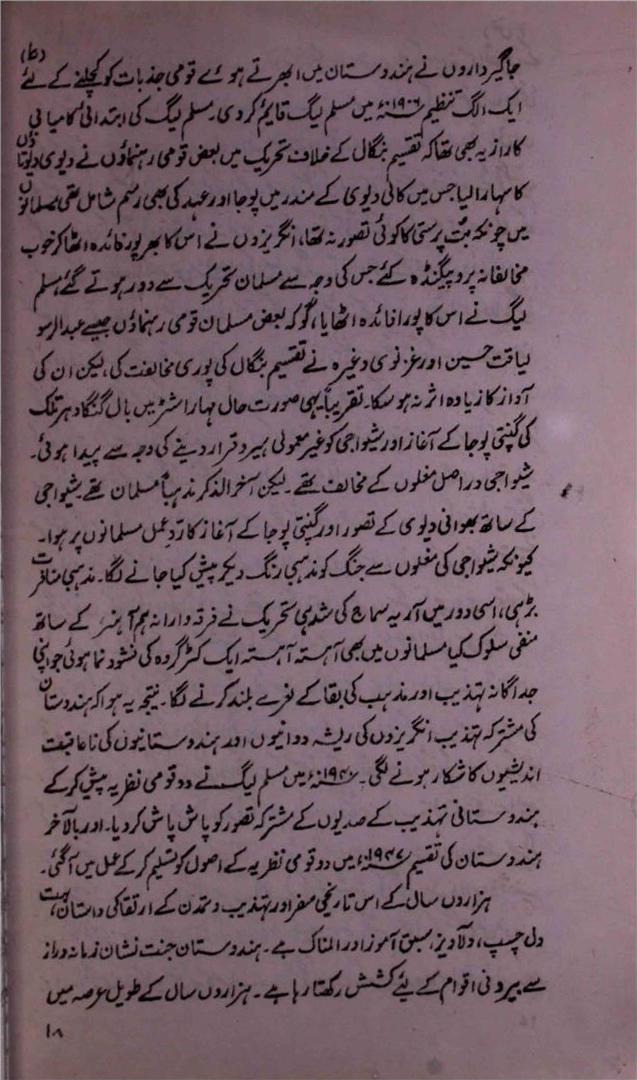 (۷)
جاگیرداروں نے ہندوستان میں ابھرتے ہوئے قومی جذبات کو کچلنے کے لئے
ایک الگ تنظیم ۱۹۰۶ء میں مسلم لیگ قایم کر دی۔ مسلم لیگ کی ابتدائی کامیابی
کا راز یہ بھی تھا کہ تقسیم بنگال کے خلاف تحریک میں بعض قومی رہنماؤں نے دیوی دیوتاؤں
کا سہارا لیا جس میں کالی دیوی کے مندر میں پوجا اور عہد کی بھی رسم شامل تھی مسلمانوں
میں چونکہ بُت پرستی کا کوئی تصور نہ تھا، انگریزوں نے اس کا بھرپور فائدہ اٹھا کر خوب
مخالفانہ پروپیگنڈہ کئے جس کی وجہ سے مسلمان تحریک سے دور ہوتے گئے مسلم
لیگ نے اس کا پورا فائدہ اٹھایا، گو کہ بعض مسلمان قومی رہنماؤں جیسے عبدالرسو
لیاقت حسین اور غزنوی وغیرہ نے تقسیم بنگال کی پوری مخالفت کی، لیکن ان کی
آواز کا زیادہ اثر نہ ہو سکا۔ تقریباً یہی صورت حال مہاراشٹر میں بال گنگا دھر تلک
کی گنپتی پوجا کے آغاز اور شیواجی کو غیر معمولی ہیرو قرار دینے کی وجہ سے پیدا ہوئی۔
شیواجی دراصل مغلوں کے مخالف تھے۔ لیکن آخر الذکر مذہباً مسلمان تھے شیواجی
کے ساتھ بھوانی دیوی کے تصور اور گنپتی پوجا کے آغاز کا ردِّ عمل مسلمانوں پر ہوا۔
کیونکہ شیواجی کی مغلوں سے جنگ کو مذہبی رنگ دیکر پیش کیا جانے لگا۔ مذہبی منافرت
بڑھی، اسی دور میں آریہ سماج کی شدھی تحریک نے فرقہ وارانہ ہم آہنگی کے ساتھ
منفی سلوک کیا مسلمانوں میں بھی آہستہ آہستہ ایک کٹر گروہ کی نشوونما ہوئی جو اپنی
جداگانہ تہذیب اور مذہب کی بقا کے نعرے بلند کرنے لگا۔ نتیجہ یہ ہوا کہ ہندوستان
کی مشترکہ تہذیب انگریزوں کی ریشہ دوانیوں اور ہندوستانیوں کی ناعاقبت
اندیشیوں کا شکار ہونے لگی۔ میں مسلم لیگ نے دو قومی نظریہ پیش کر کے
ہندوستانی تہذیب کے صدیوں کے مشترکہ تصور کو پاش پاش کر دیا۔ اور بالآخر
ہندوستان کی تقسیم ۱۹۴۷ء میں دو قومی نظریہ کے اصول کو تسلیم کر کے عمل میں آگئی۔
ہزاروں سال کے اس تاریخی سفر اور تہذیب و تمدن کے ارتقا کی داستان، بہت
دل چسپ، دلآویز، سبق آموز اور المناک ہے۔ ہندوستان جنت نشان زمانہ دراز
سے بیرونی اقوام کے لیئے کشش رکھتا رہا ہے۔ ہزاروں سال کے طویل عرصہ میں
۱۸